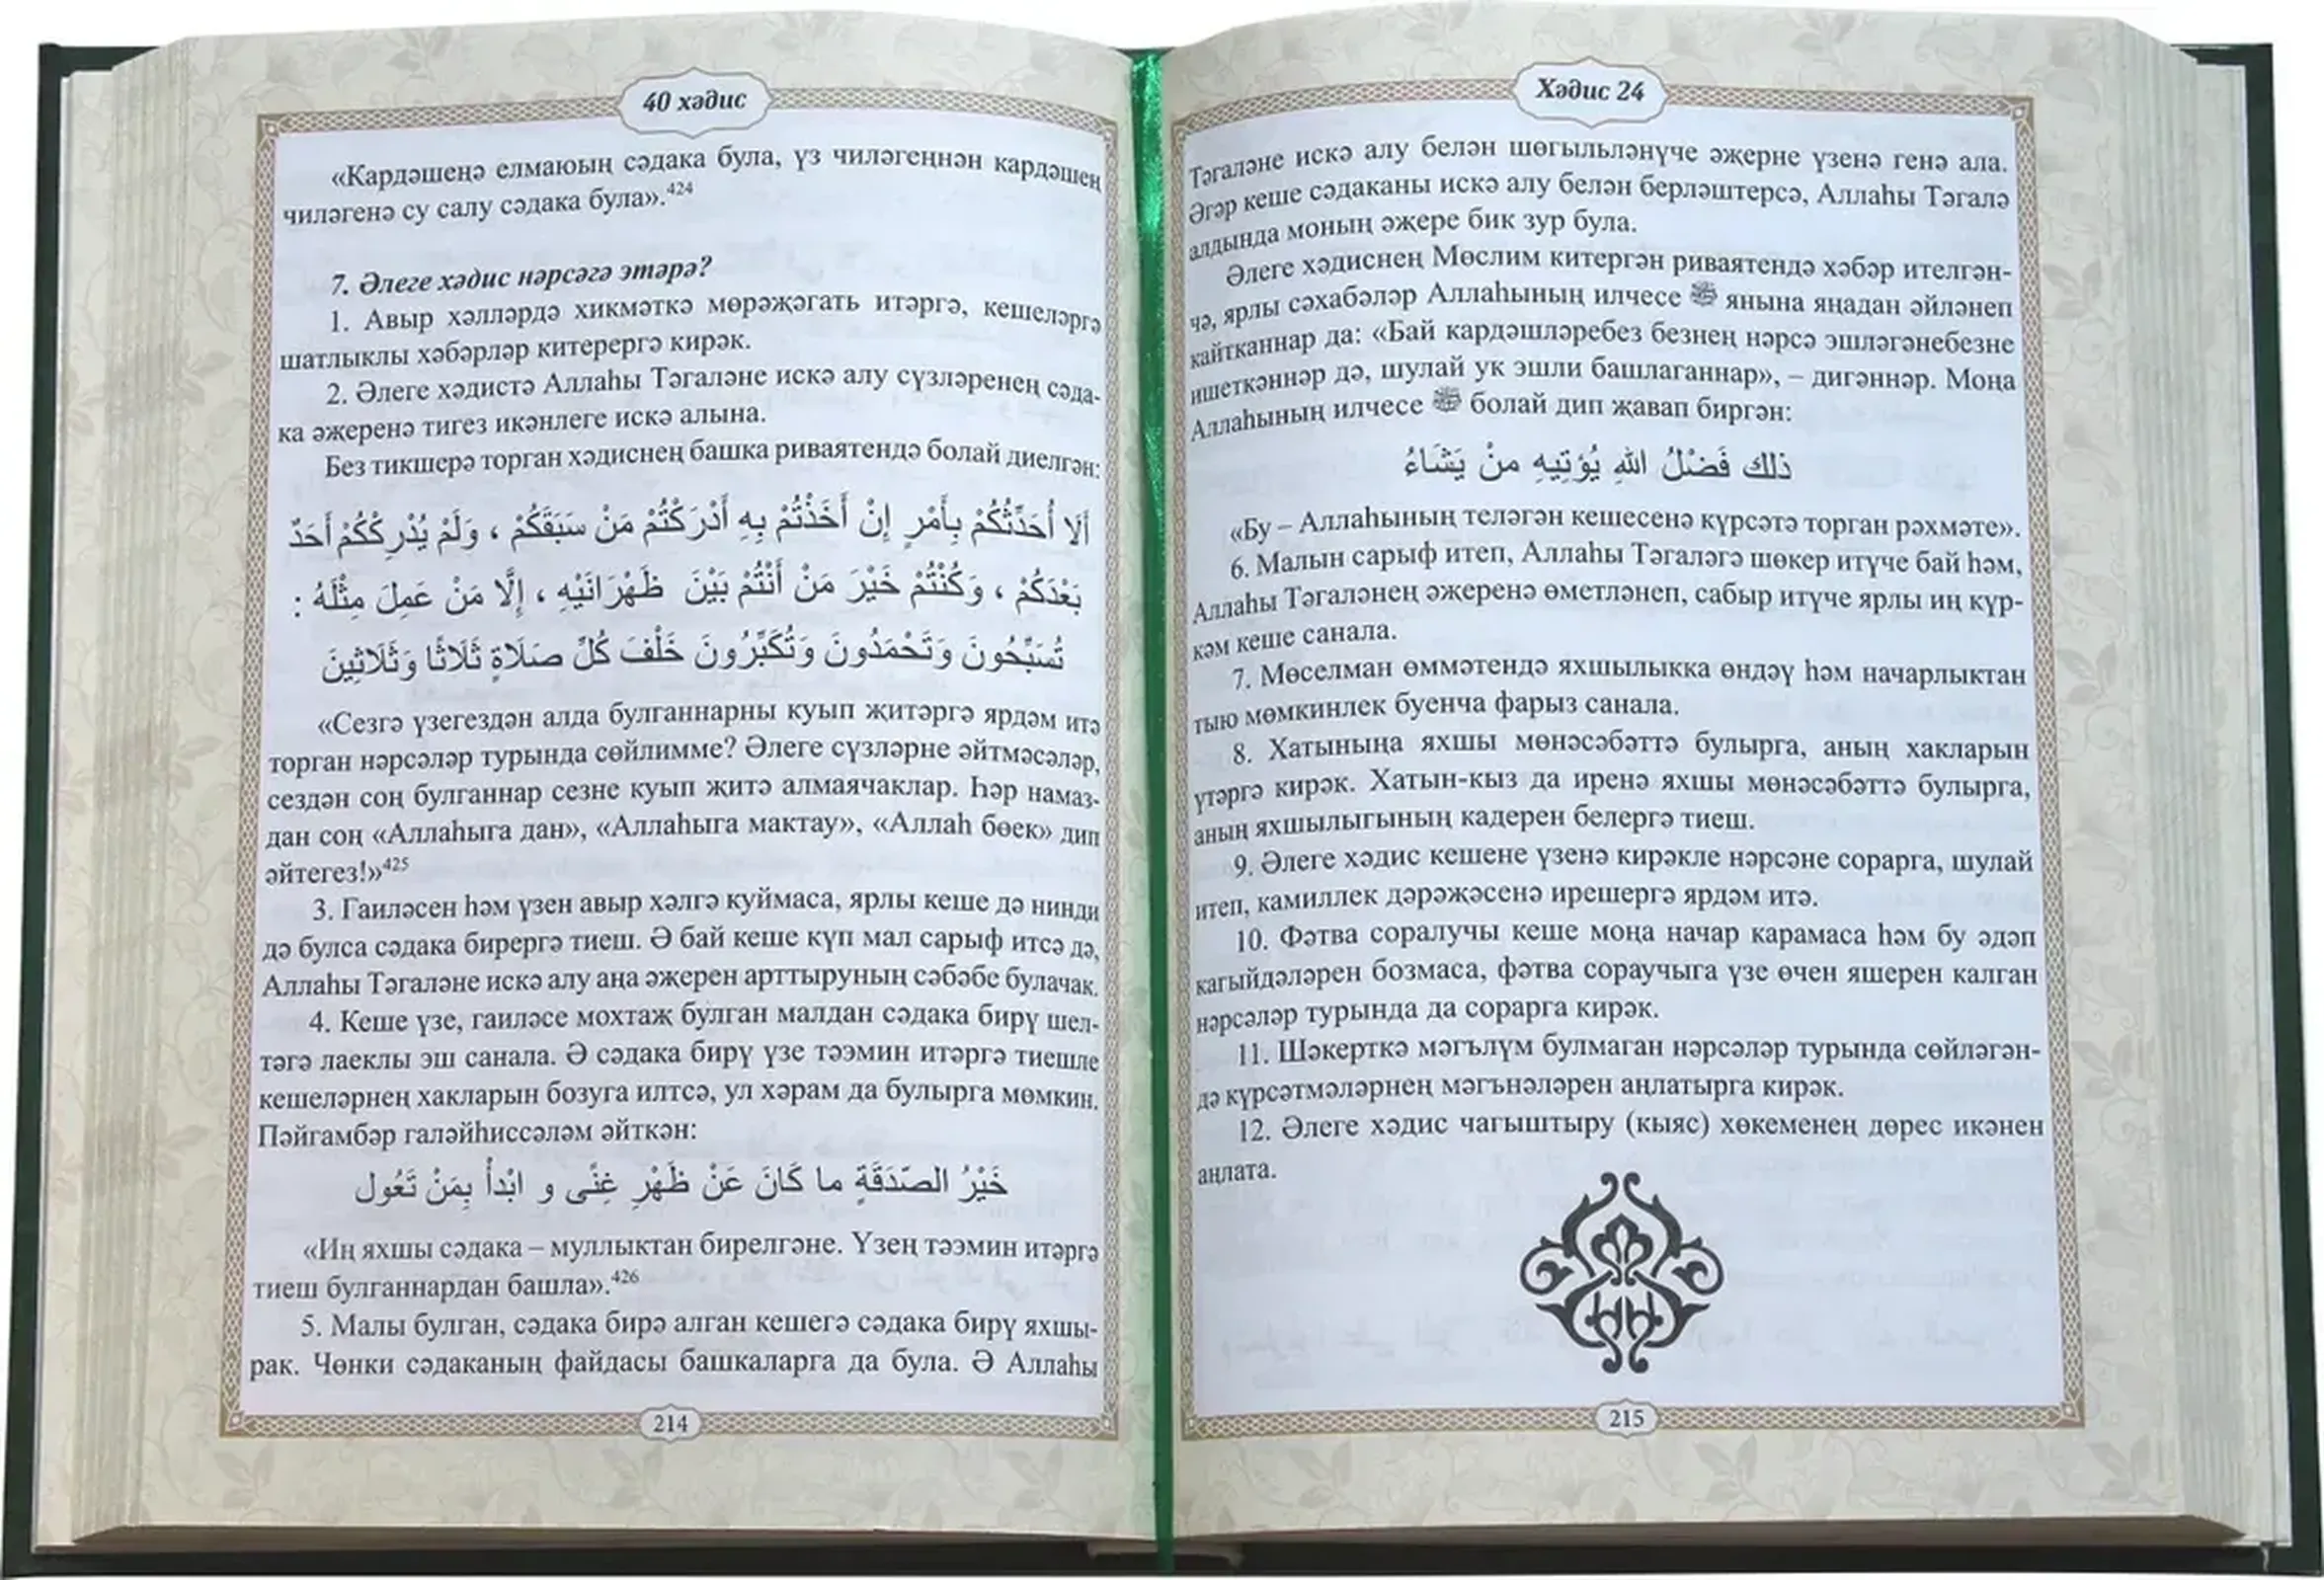 40 хәдис
«Кардәшеңә елмаюың сәдака була, үз чиләгеңнән кардәшең
чиләгенә су салу сәдака була».424
7. Әлеге хәдис нәрсәгә этәрә?
1. Авыр хәлләрдә хикмәткә мөрәҗәгать итәргә, кешеләргә
шатлыклы хәбәрләр китерергә кирәк.
2. Әлеге хәдистә Аллаһы Тәгаләне искә алу сүзләренең сәда-
ка әҗеренә тигез икәнлеге искә алына.
Без тикшерә торган хәдиснең башка риваятендә болай диелгән:
أَلَا أُحَدِّثُكُمْ بِأَمْرٍ إِنْ أَخَذْتُمْ بِهِ أَدْرَكْتُمْ مَنْ سَبَقَكُمْ ، وَلَمْ يُدْرِكْكُمْ أَحَدٌ
بَعْدَكُمْ ، وَكُنْتُمْ خَيْرَ مَنْ أَنْتُمْ بَيْنَ ظَهْرَانَيْهِ ، إِلَّا مَنْ عَمِلَ مِثْلَهُ :
تُسَبِّحُونَ وَتَحْمَدُونَ وَتُكَبِّرُونَ خَلْفَ كُلِّ صَلَاةٍ ثَلَاثًا وَثَلَاثِينَ
«Сезгә үзегездән алда булганнарны куып җитәргә ярдәм итә
торган нәрсәләр турында сөйлимме? Әлеге сүзләрне әйтмәсәләр,
сездән соң булганнар сезне куып җитә алмаячаклар. Һәр намаз-
дан соң «Аллаһыга дан», «Аллаһыга мактау», «Аллаһ бөек» дип
әйтегез!»425
3. Гаиләсен һәм үзен авыр хәлгә куймаса, ярлы кеше дә нинди
дә булса сәдака бирергә тиеш. Ә бай кеше күп мал сарыф итсә дә,
Аллаһы Тәгаләне искә алу аңа әҗерен арттыруның сәбәбе булачак.
4. Кеше үзе, гаиләсе мохтаҗ булган малдан сәдака бирү шел-
тәгә лаеклы эш санала. Ә сәдака бирү үзе тәэмин итәргә тиешле
кешеләрнең хакларын бозуга илтсә, ул хәрам да булырга мөмкин.
Пәйгамбәр галәйһиссәләм әйткән:
خَيْرُ الصّدَقَةِ ما كَانَ عَنْ ظَهْرِ غِنًى و ابْدأْ بِمَنْ تَعُول
«Иң яхшы сәдака – муллыктан бирелгәне. Үзең тәэмин итәргә
тиеш булганнардан башла».426
5. Малы булган, сәдака бирә алган кешегә сәдака бирү яхшы-
рак. Чөнки сәдаканың файдасы башкаларга да була. Ә Аллаһы
214
Хәдис 24
Тәгаләне искә алу белән шөгыльләнүче әҗерне үзенә генә ала.
Әгәр кеше сәдаканы искә алу белән берләштерсә, Аллаһы Тәгалә
алдында моның әҗере бик зур була.
Әлеге хәдиснең Мөслим китергән риваятендә хәбәр ителгән-
чә, ярлы сәхабәләр Аллаһының илчесе ﷺ янына яңадан әйләнеп
кайтканнар да: «Бай кардәшләребез безнең нәрсә эшләгәнебезне
ишеткәннәр дә, шулай ук эшли башлаганнар», – дигәннәр. Моңа
Аллаһының илчесе ﷺ болай дип җавап биргән:
ذلك فَضْلُ اللهِ يُؤتِيهِ منْ يَشَاءُ
«Бу – Аллаһының теләгән кешесенә күрсәтә торган рәхмәте».
6. Малын сарыф итеп, Аллаһы Тәгаләгә шөкер итүче бай һәм,
Аллаһы Тәгаләнең әҗеренә өметләнеп, сабыр итүче ярлы иң күр-
кәм кеше санала.
7. Мөселман өммәтендә яхшылыкка өндәү һәм начарлыктан
тыю мөмкинлек буенча фарыз санала.
8. Хатыныңа яхшы мөнәсәбәттә булырга, аның хакларын
үтәргә кирәк. Хатын-кыз да иренә яхшы мөнәсәбәттә булырга,
аның яхшылыгының кадерен белергә тиеш.
9. Әлеге хәдис кешене үзенә кирәкле нәрсәне сорарга, шулай
итеп, камиллек дәрәҗәсенә ирешергә ярдәм итә.
10. Фәтва соралучы кеше моңа начар карамаса һәм бу әдәп
кагыйдәләрен бозмаса, фәтва сораучыга үзе өчен яшерен калган
нәрсәләр турында да сорарга кирәк.
11. Шәкерткә мәгълүм булмаган нәрсәләр турында сөйләгән-
дә күрсәтмәләрнең мәгънәләрен аңлатырга кирәк.
12. Әлеге хәдис чагыштыру (кыяс) хөкеменең дөрес икәнен
аңлата.
215